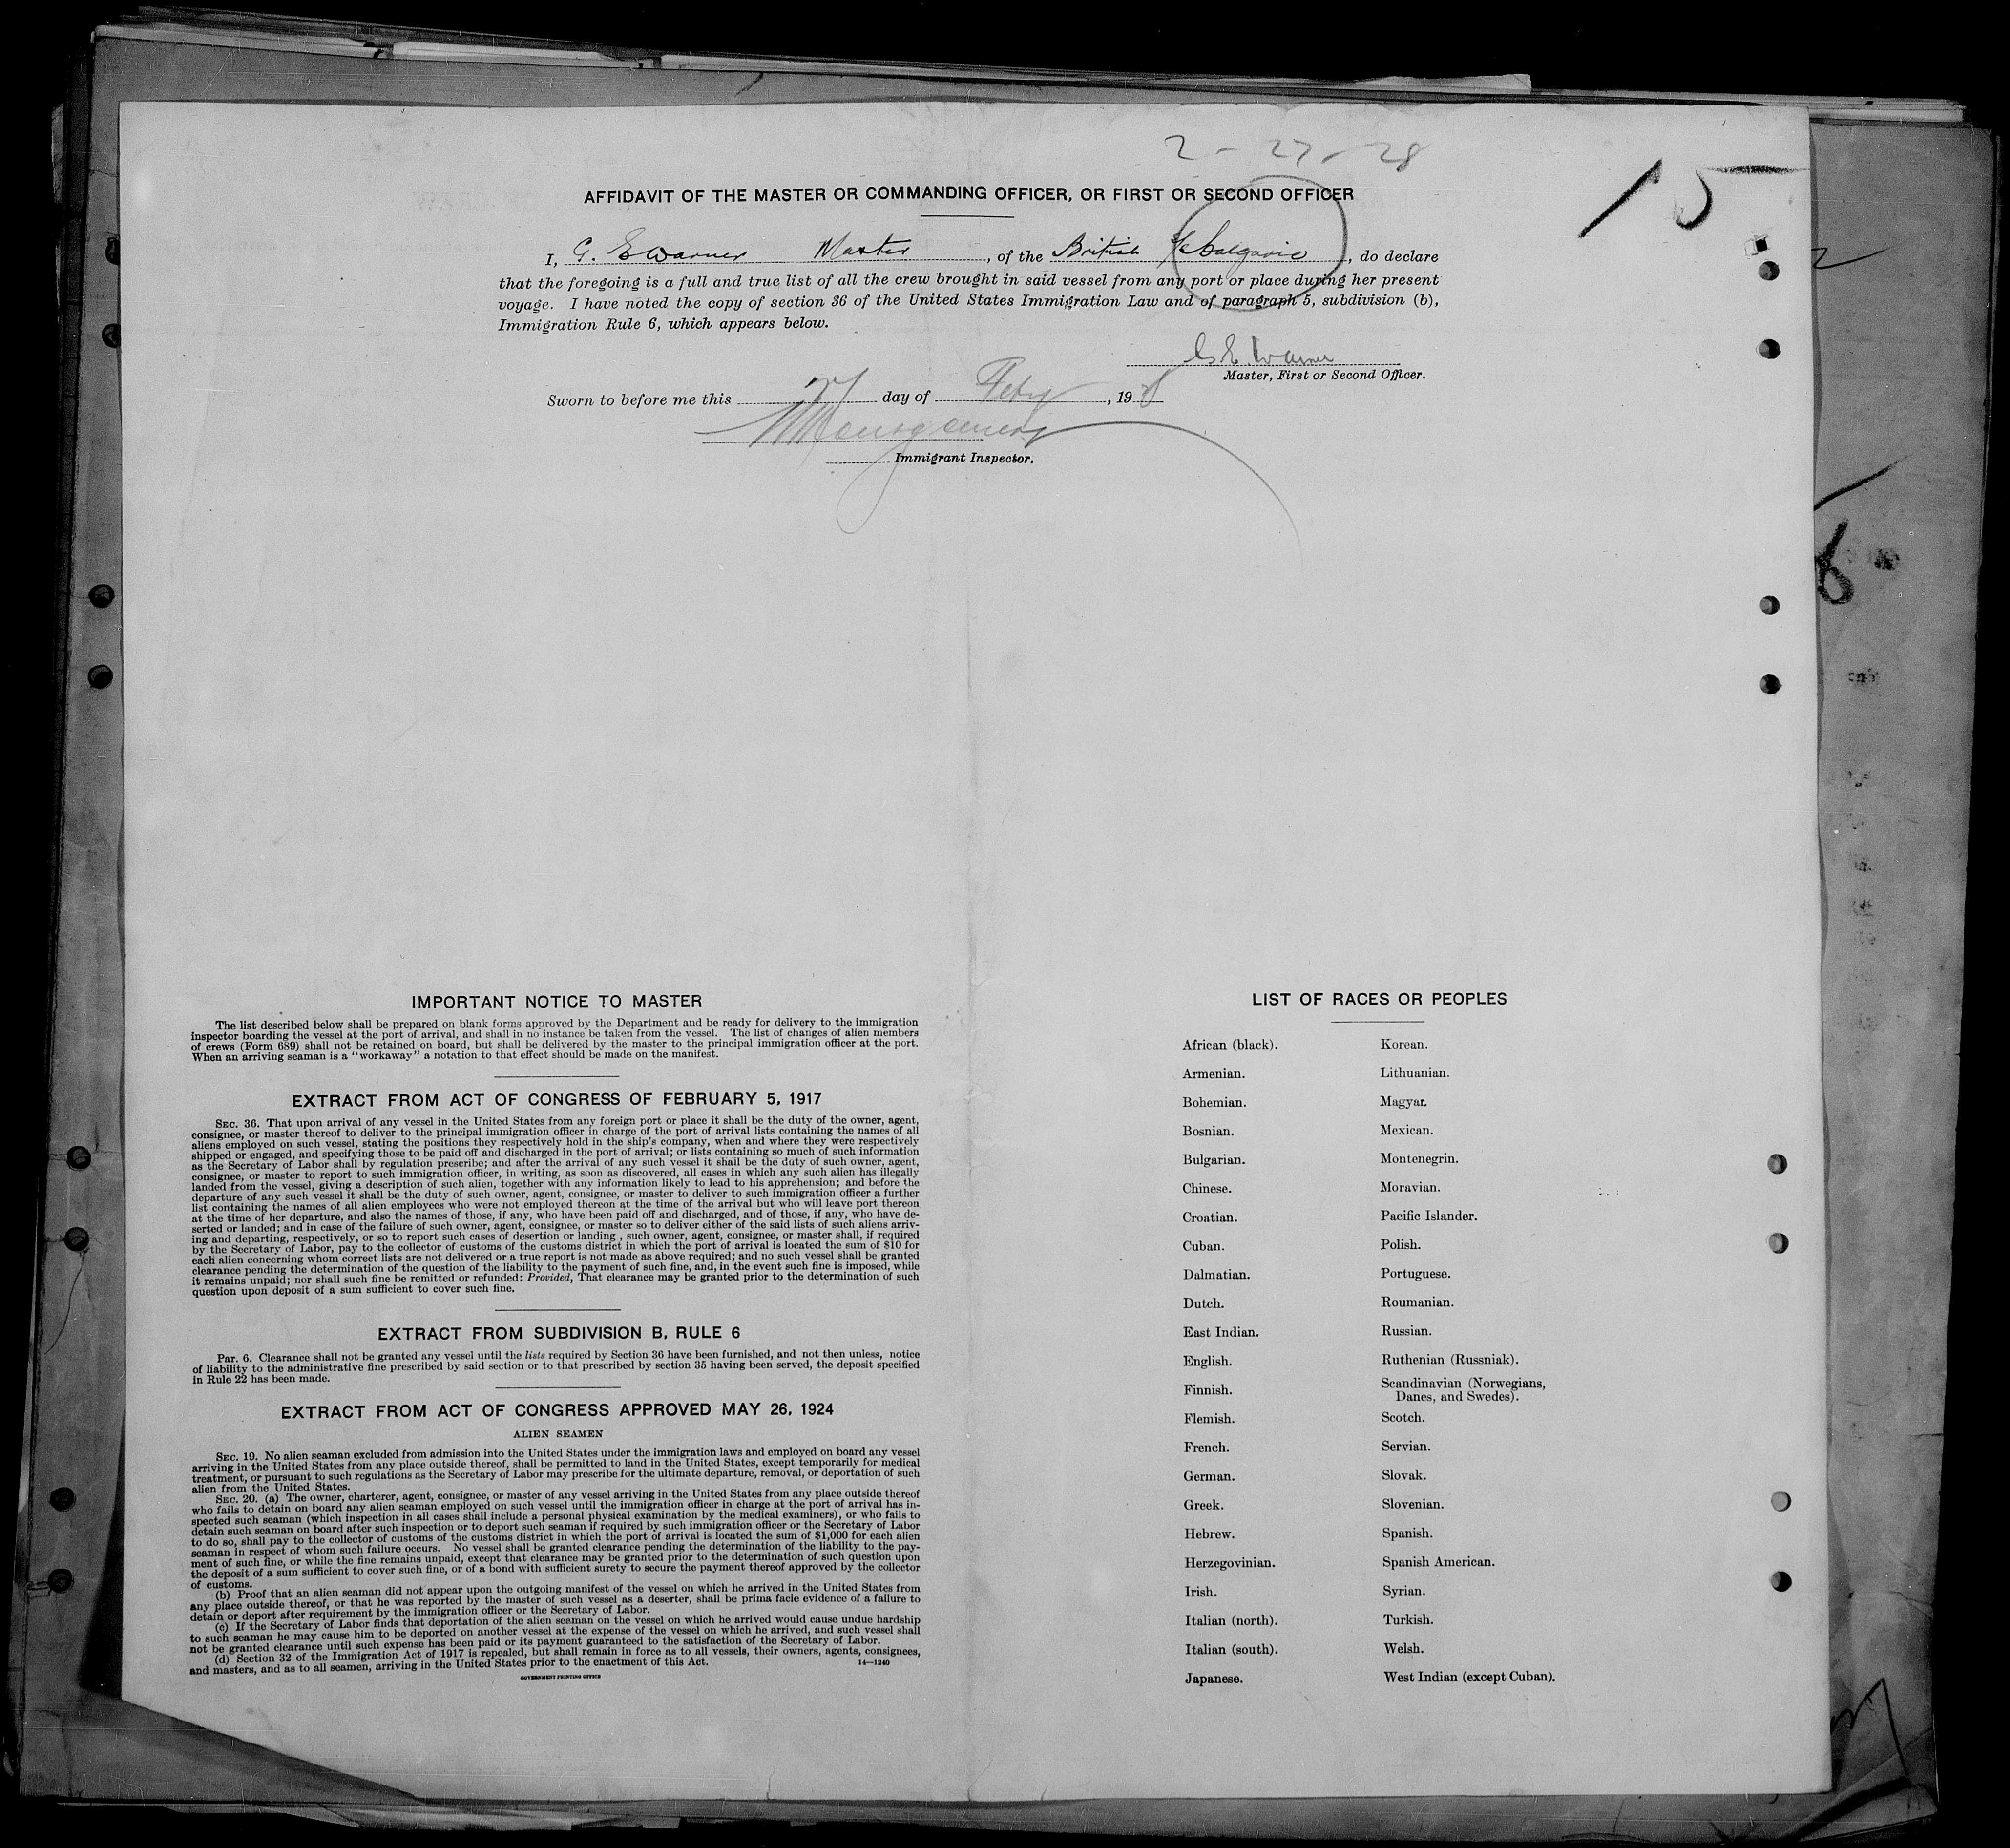 2 - 27 - 28
15
AFFIDAVIT OF THE MASTER OR COMMANDING OFFICER, OR FIRST OR SECOND OFFICER
I, G. E Warner Master, of the British , do declare
that the foregoing is a full and true list of all the crew brought in said vessel from any port or place during her present
voyage. I have noted the copy of section 36 of the United States Immigration Law and of paragraph 5, subdivision (b),
Immigration Rule 6, which appears below.
G. E. Warner
Master, First or Second Officer.
Sworn to before me this 27 day of Feby, 1928
Montgomery
Immigrant Inspector.
IMPORTANT NOTICE TO MASTER
The list described below shall be prepared on blank forms approved by the Department and be ready for delivery to the immigration
inspector boarding the vessel at the port of arrival, and shall in no instance be taken from the vessel. The list of changes of alien members
of crews (Form 689) shall not be retained on board, but shall be delivered by the master to the principal immigration officer at the port.
When an arriving seaman is a "workaway" a notation to that effect should be made on the manifest.
EXTRACT FROM ACT OF CONGRESS OF FEBRUARY 5, 1917
SEC. 36. That upon arrival of any vessel in the United States from any foreign port or place it shall be the duty of the owner, agent,
consignee, or master thereof to deliver to the principal immigration officer in charge of the port of arrival lists containing the names of all
aliens employed on such vessel, stating the positions they respectively hold in the ship's company, when and where they were respectively
shipped or engaged, and specifying those to be paid off and discharged in the port of arrival; or lists containing so much of such information
as the Secretary of Labor shall by regulation prescribe; and after the arrival of any such vessel it shall be the duty of such owner, agent,
consignee, or master to report to such immigration officer, in writing, as soon as discovered, all cases in which any such alien has illegally
landed from the vessel, giving a description of such alien, together with any information likely to lead to his apprehension; and before the
departure of any such vessel it shall be the duty of such owner, agent, consignee, or master to deliver to such immigration officer a further
list containing the names of all alien employees who were not employed thereon at the time of the arrival but who will leave port thereon
at the time of her departure, and also the names of those, if any, who have been paid off and discharged, and of those, if any, who have de-
serted or landed; and in case of the failure of such owner, agent, consignee, or master so to deliver either of the said lists of such aliens arriv-
ing and departing, respectively, or so to report such cases of desertion or landing , such owner, agent, consignee, or master shall, if required
by the Secretary of Labor, pay to the collector of customs of the customs district in which the port of arrival is located the sum of $10 for
each alien concerning whom correct lists are not delivered or a true report is not made as above required; and no such vessel shall be granted
clearance pending the determination of the question of the liability to the payment of such fine, and, in the event such fine is imposed, while
it remains unpaid; nor shall such fine be remitted or refunded: Provided, That clearance may be granted prior to the determination of such
question upon deposit of a sum sufficient to cover such fine.
EXTRACT FROM SUBDIVISION B, RULE 6
Par. 6. Clearance shall not be granted any vessel until the lists required by Section 36 have been furnished, and not then unless, notice
of liability to the administrative fine prescribed by said section or to that prescribed by section 35 having been served, the deposit specified
in Rule 22 has been made.
EXTRACT FROM ACT OF CONGRESS APPROVED MAY 26, 1924
ALIEN SEAMEN
SEC. 19. No alien seaman excluded from admission into the United States under the immigration laws and employed on board any vessel
arriving in the United States from any place outside thereof, shall be permitted to land in the United States, except temporarily for medical
treatment, or pursuant to such regulations as the Secretary of Labor may prescribe for the ultimate departure, removal, or deportation of such
alien from the United States.
SEC. 20. (a) The owner, charterer, agent, consignee, or master of any vessel arriving in the United States from any place outside thereof
who fails to detain on board any alien seaman employed on such vessel until the immigration officer in charge at the port of arrival has in-
spected such seaman (which inspection in all cases shall include a personal physical examination by the medical examiners), or who fails to
detain such seaman on board after such inspection or to deport such seaman if required by such immigration officer or the Secretary of Labor
to do so, shall pay to the collector of customs of the customs district in which the port of arrival is located the sum of $1,000 for each alien
seaman in respect of whom such failure occurs. No vessel shall be granted clearance pending the determination of the liability to the pay-
ment of such fine, or while the fine remains unpaid, except that clearance may be granted prior to the determination of such question upon
the deposit of a sum sufficient to cover such fine, or of a bond with sufficient surety to secure the payment thereof approved by the collector
of customs.
(b) Proof that an alien seaman did not appear upon the outgoing manifest of the vessel on which he arrived in the United States from
any place outside thereof, or that he was reported by the master of such vessel as a deserter, shall be prima facie evidence of a failure to
detain or deport after requirement by the immigration officer or the Secretary of Labor.
(c) If the Secretary of Labor finds that deportation of the alien seaman on the vessel on which he arrived would cause undue hardship
to such seaman he may cause him to be deported on another vessel at the expense of the vessel on which he arrived, and such vessel shall
not be granted clearance until such expense has been paid or its payment guaranteed to the satisfaction of the Secretary of Labor.
(d) Section 32 of the Immigration Act of 1917 is repealed, but shall remain in force as to all vessels, their owners, agents, consignees,
and masters, and as to all seamen, arriving in the United States prior to the enactment of this Act.
14—1240
GOVERNMENT PRINTING OFFICE
LIST OF RACES OR PEOPLES
African (black). Korean.
Armenian. Lithuanian.
Bohemian. Magyar.
Bosnian. Mexican.
Bulgarian. Montenegrin.
Chinese. Moravian.
Croatian. Pacific Islander.
Cuban. Polish.
Dalmatian. Portuguese.
Dutch. Roumanian.
East Indian. Russian.
English. Ruthenian (Russniak).
Finnish. Scandinavian (Norwegians,
Danes, and Swedes).
Flemish. Scotch.
French. Servian.
German. Slovak.
Greek. Slovenian.
Hebrew. Spanish.
Herzegovinian. Spanish American.
Irish. Syrian.
Italian (north). Turkish.
Italian (south). Welsh.
Japanese. West Indian (except Cuban).